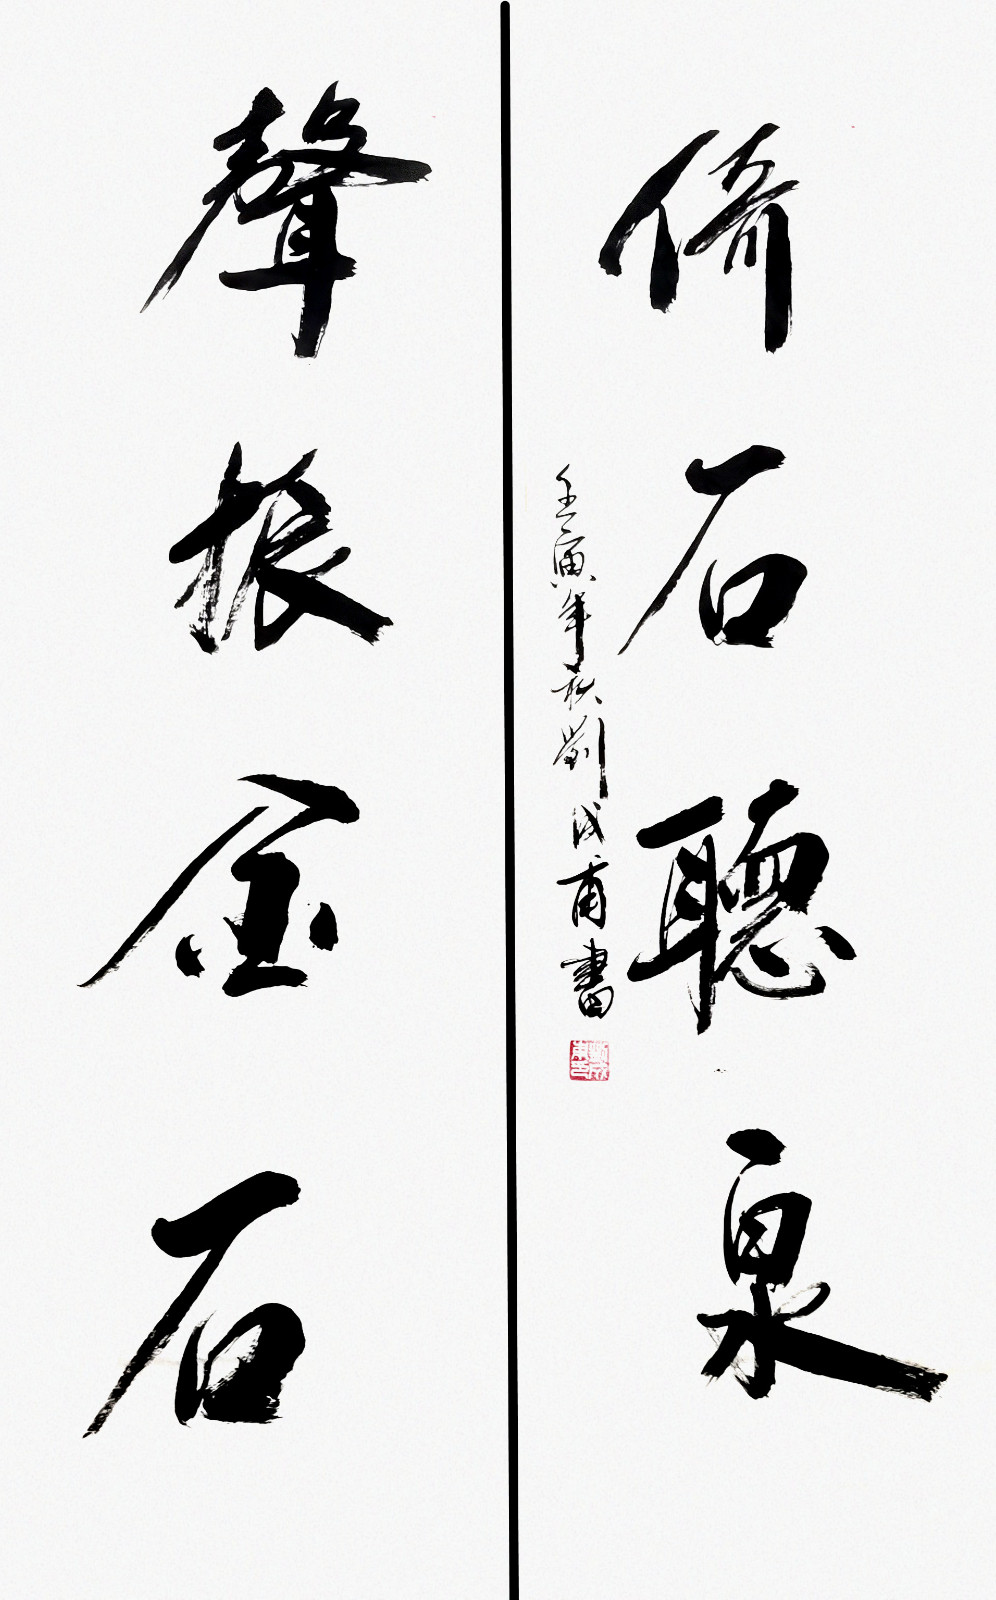 倚石聽泉
壬寅年秋劉成甫書
聲振金石